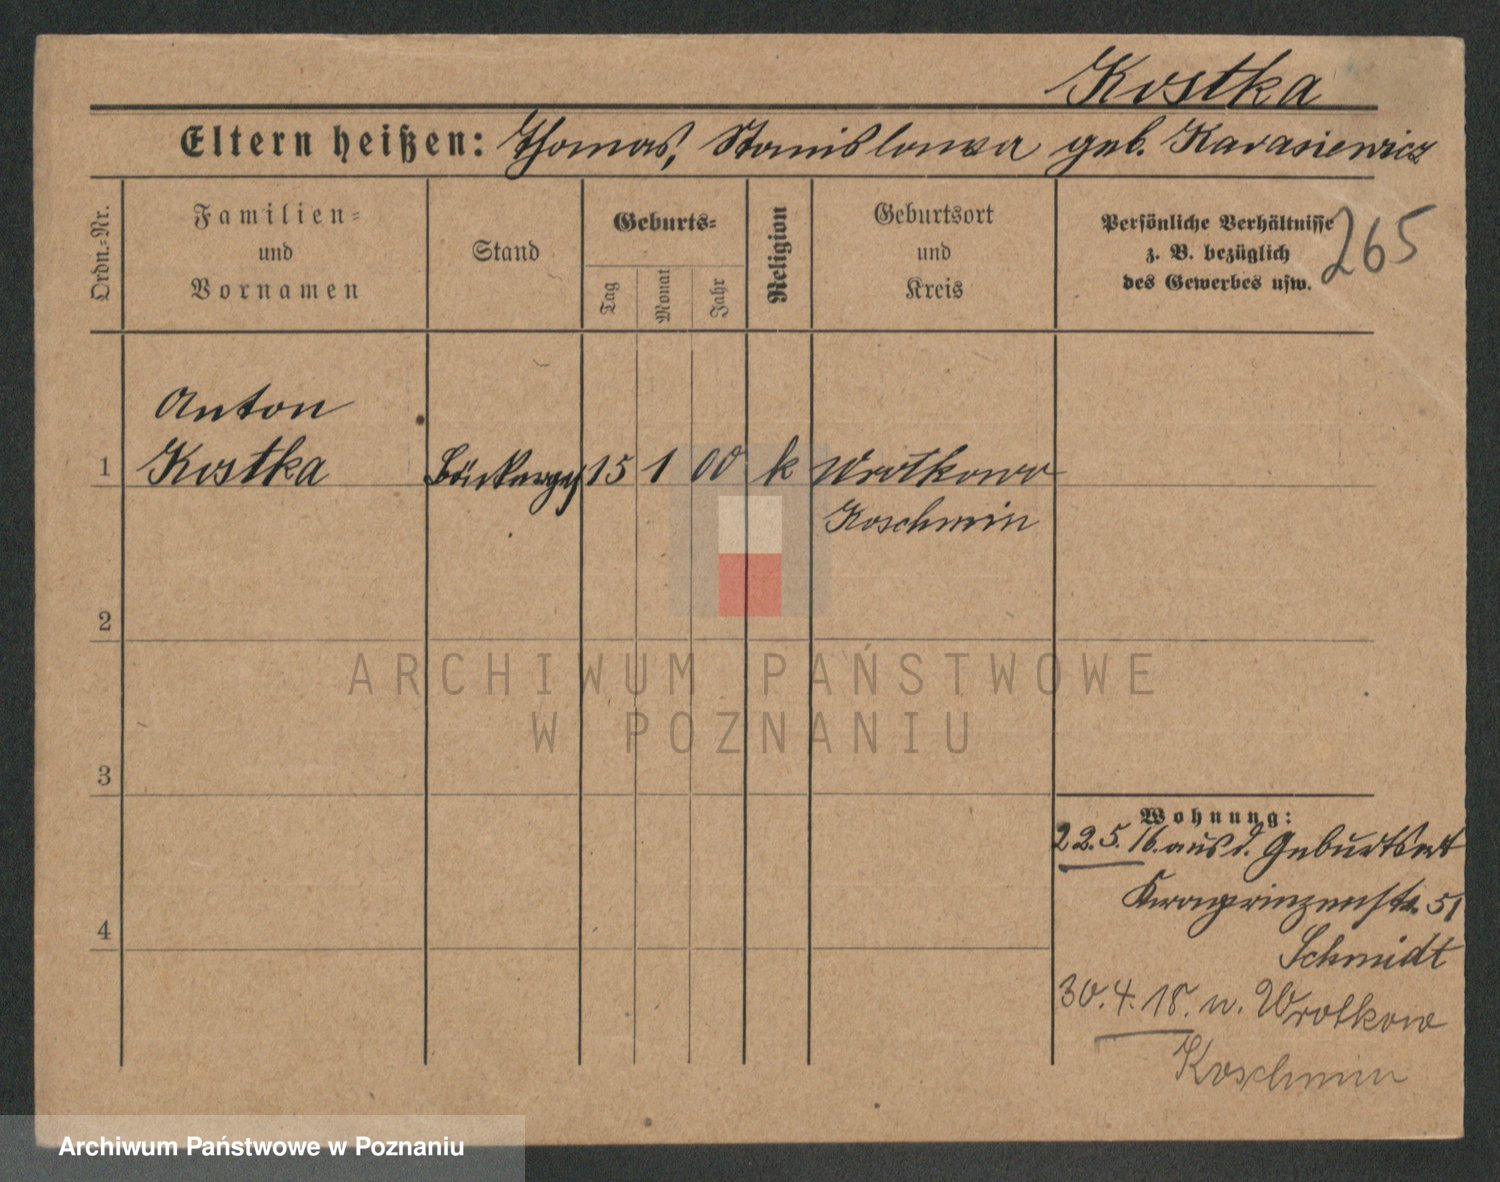 Kostka
Eltern heißen: Thomas, Stanislawa geb. Karasiewicz
Ordn.-Nr.
Familien-
und
Vornamen
Stand
Geburts-
Tag
Monat
Jahr
Religion
Geburtsort
und
Kreis
Persönliche Verhältnisse
z. B. bezüglich
des Gewerbes usw.
265
Anton
1 Kostka Bäckerges 15 1 00 k Wrotkowo
Koschmin
2
ARCHIWUM PAŃSTWOWE
W POZNANIU
3
Wohnung:
22.5.16. aus d. Geburtsort
Kronprinzenstr. 51
4
Schmidt
30.4.18. n. Wrotkow
Koschmin
Archiwum Państwowe w Poznaniu